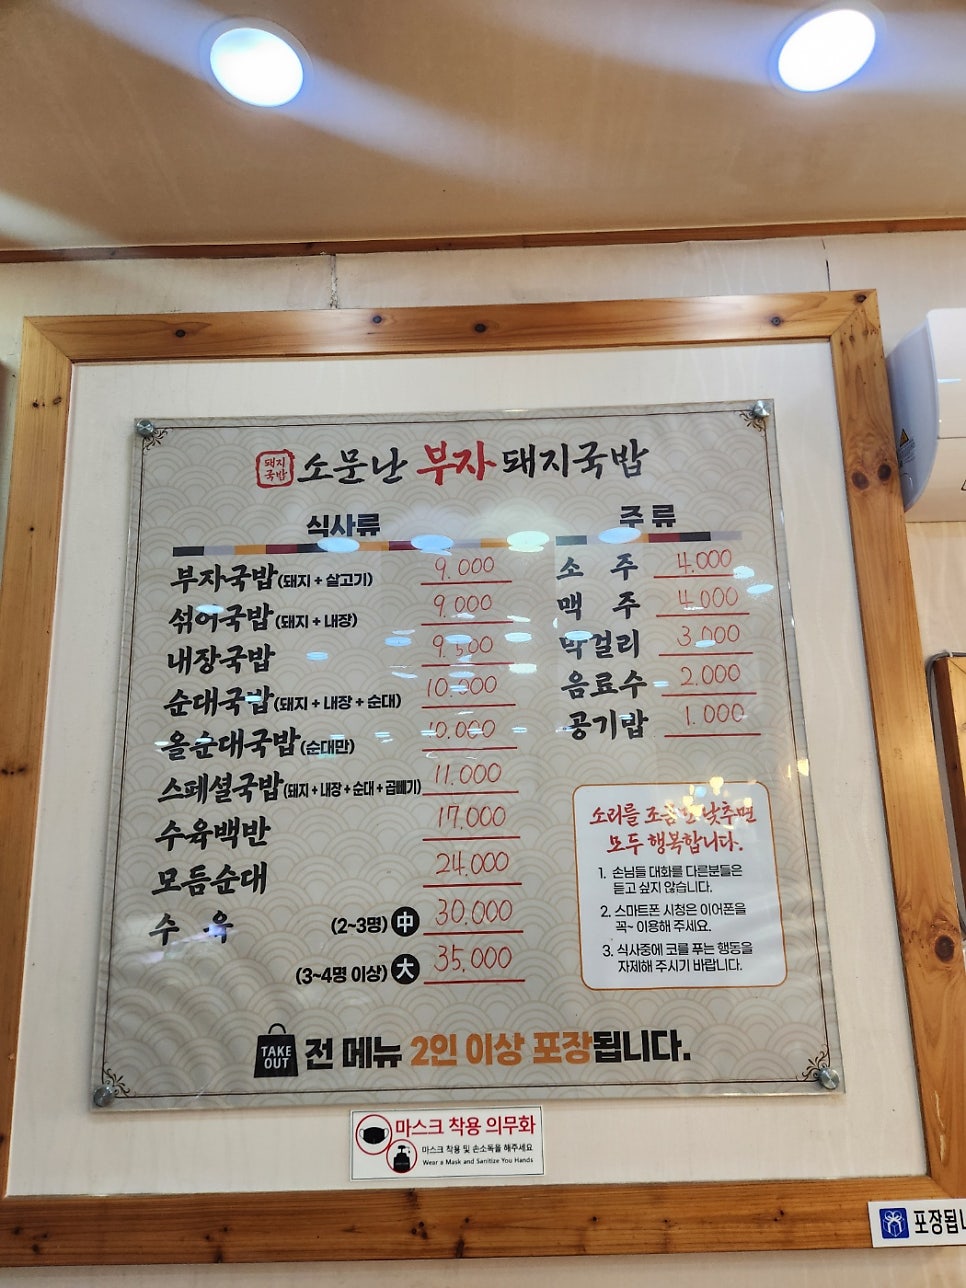 돼지국밥 소문난 부자 돼지국밥
식사류
부자국밥(돼지 + 살고기) 9.000
섞어국밥(돼지 + 내장) 9.000
내장국밥 9.500
순대국밥(돼지 + 내장 + 순대) 10.000
올순대국밥(순대만) 10.000
스페셜국밥(돼지 + 내장 + 순대 + 곱빼기) 11.000
수육백반 17.000
모듬순대 24.000
수 육 (2~3명) 中 30.000
(3~4명 이상) 大 35.000
주류
소 주 4.000
맥 주 4.000
막걸리 3.000
음료수 2.000
공기밥 1.000
소리를 조금만 낮추면
모두 행복합니다.
1. 손님들 대화를 다른분들은
듣고 싶지 않습니다.
2. 스마트폰 시청은 이어폰을
꼭~ 이용해 주세요.
3. 식사중에 코를 푸는 행동을
자제해 주시기 바랍니다.
TAKE OUT 전 메뉴 2인 이상 포장됩니다.
마스크 착용 의무화
마스크 착용 및 손소독을 해주세요
Wear a Mask and Sanitize You Hands
포장됩니